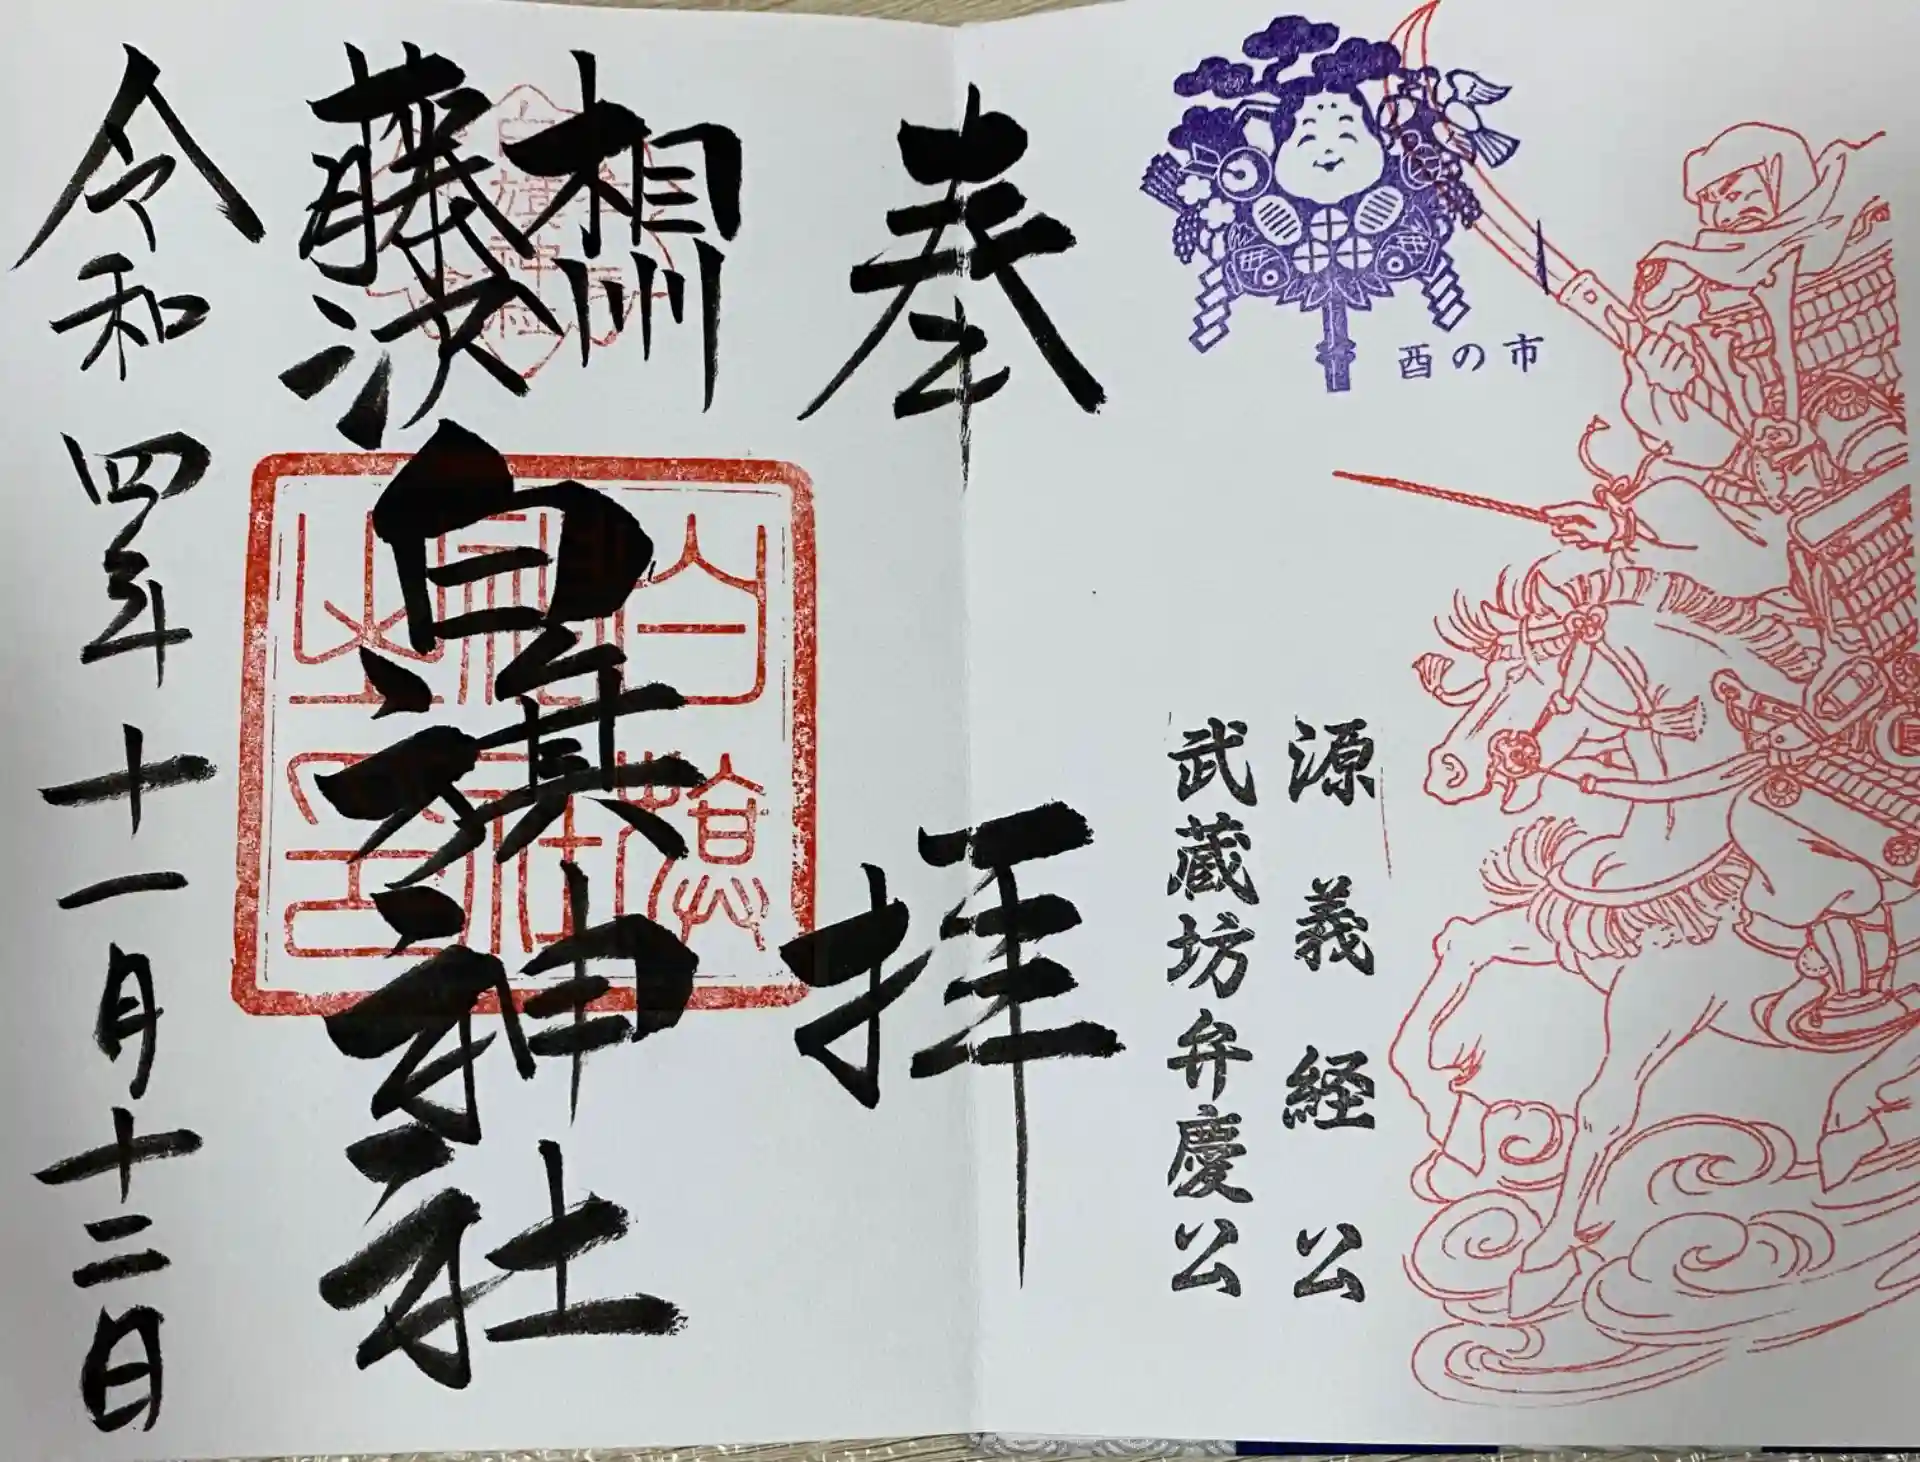 酉の市
源義経公
武蔵坊弁慶公
奉拝
相州
藤沢
白旗神社
白旗神社之印
令和四年十一月十二日